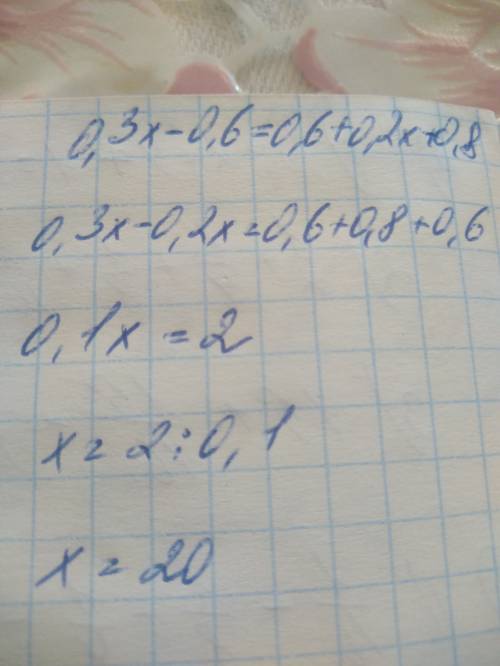 0,3x-0,6=0,6+0,2x+0,8
0,3x-0,2x=0,6+0,8+0,6
0,1x=2
x=2:0,1
x=20